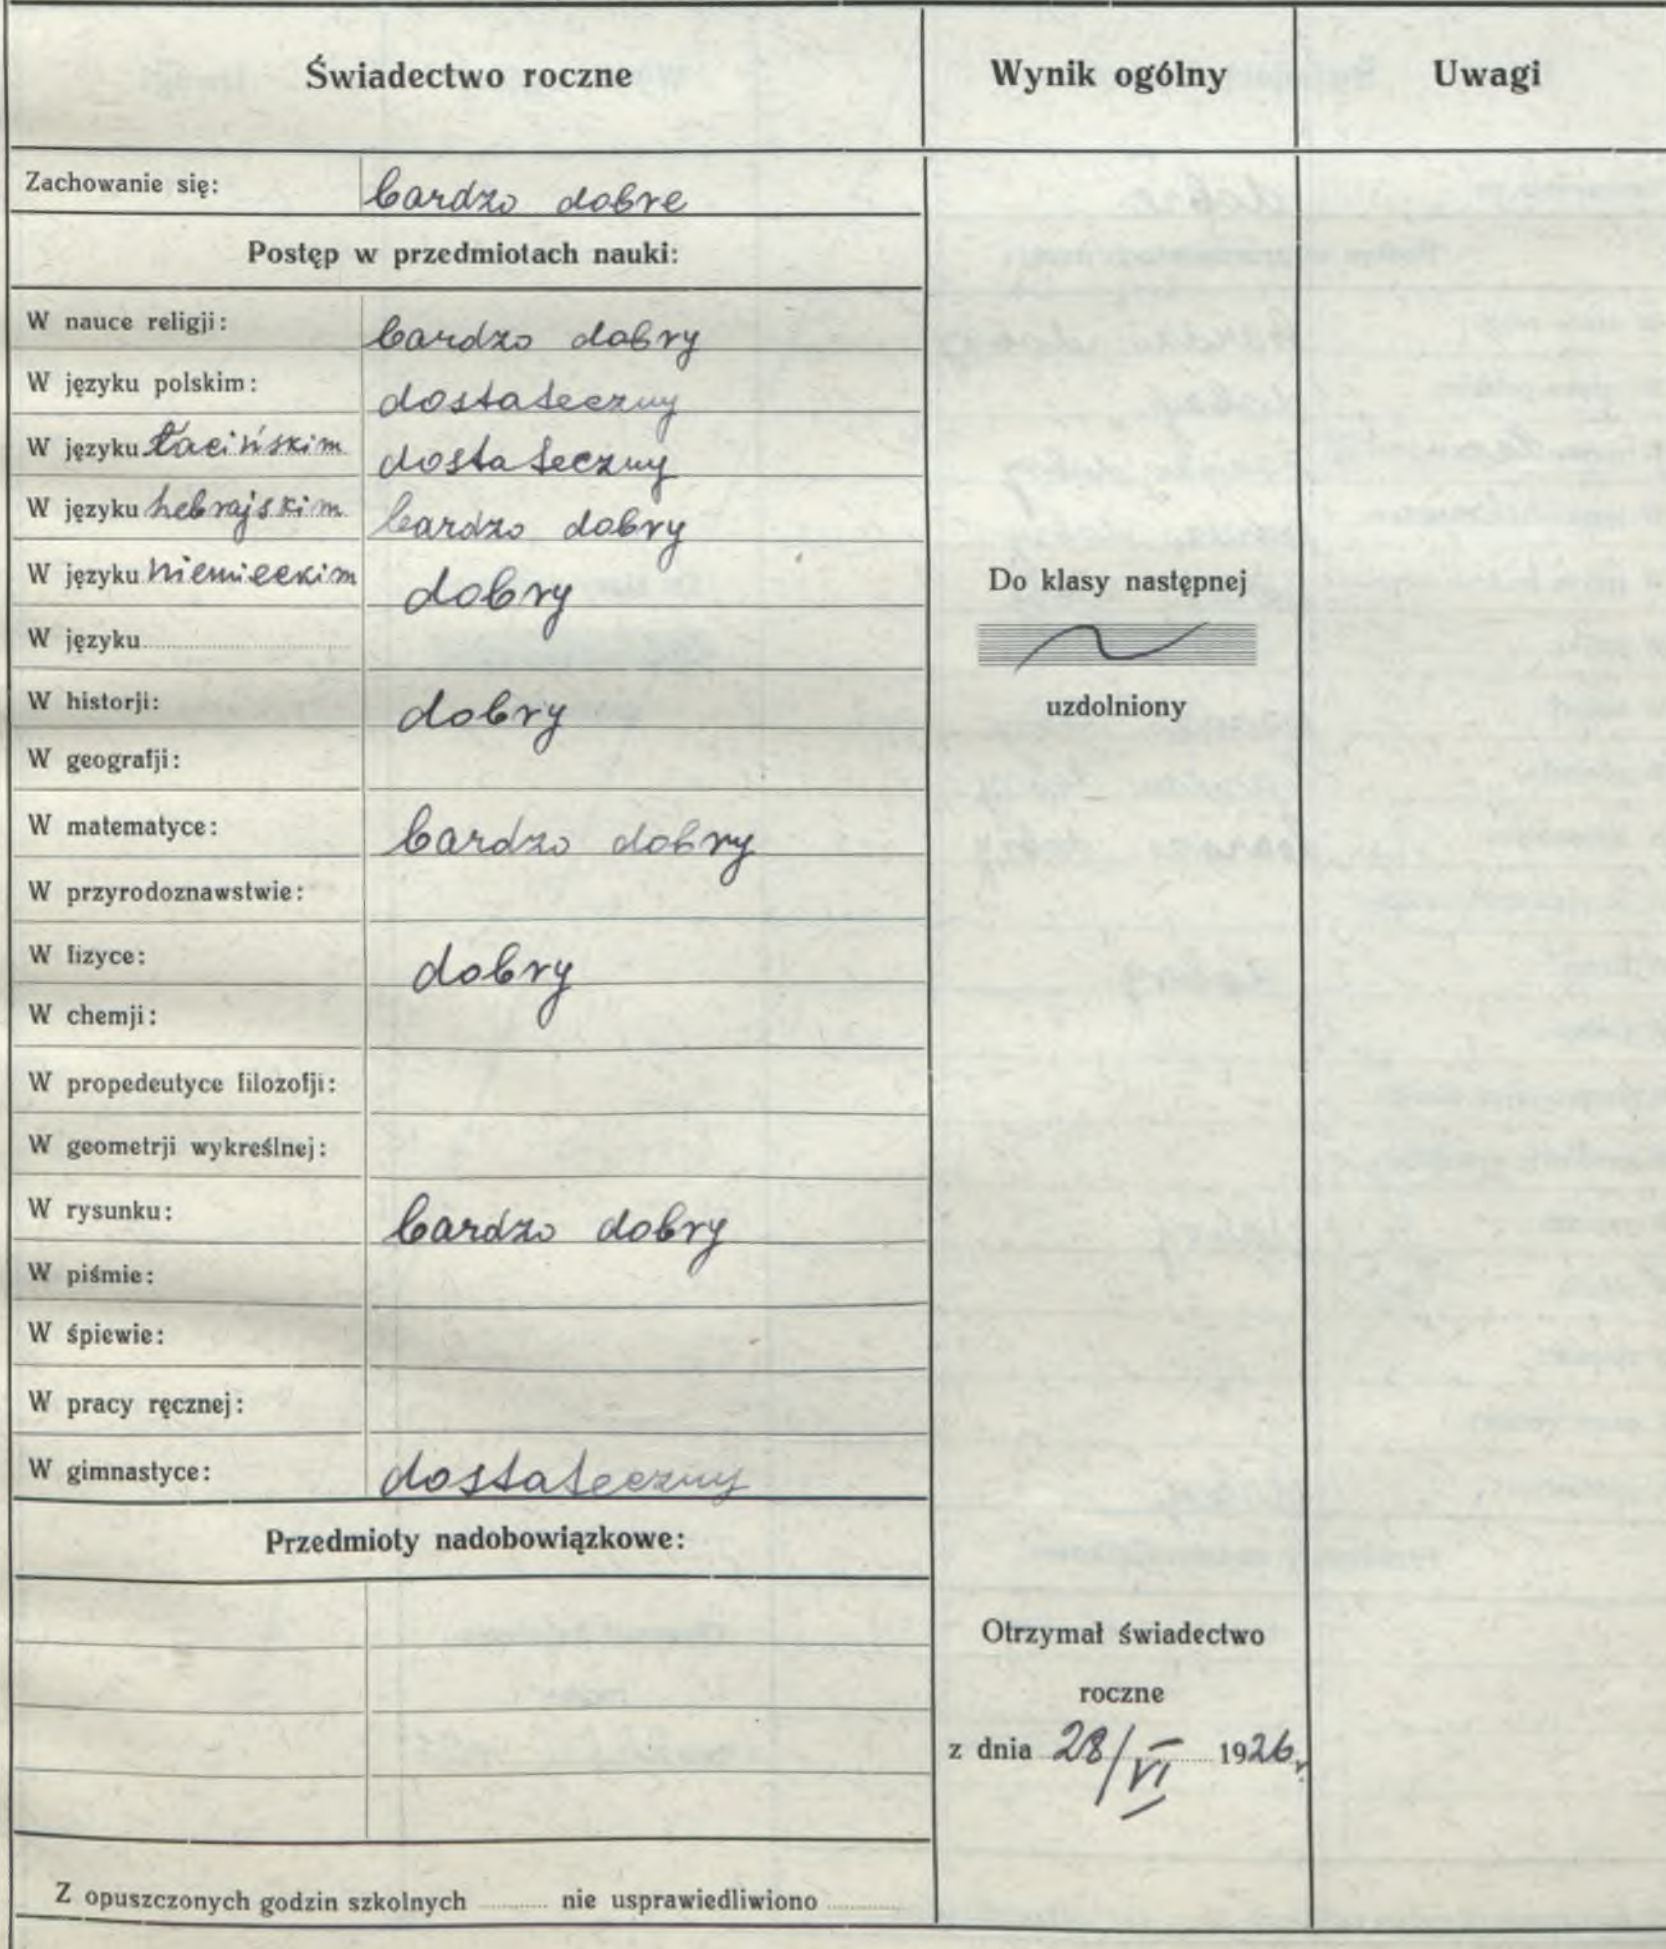 Świadectwo roczne
Wynik ogólny
Uwagi
Zachowanie się: bardzo dobre
Postęp w przedmiotach nauki:
W nauce religji: bardzo dobry
W języku polskim: dostateczny
W języku łacińskim dostateczny
W języku hebrajskim bardzo dobry
W języku niemieckim dobry
W języku
W historji: dobry
W geografji:
W matematyce: bardzo dobry
W przyrodoznawstwie:
W fizyce: dobry
W chemji:
W propedeutyce filozofji:
W geometrji wykreślnej:
W rysunku: bardzo dobry
W piśmie:
W śpiewie:
W pracy ręcznej:
W gimnastyce: dostateczny
Przedmioty nadobowiązkowe:
Z opuszczonych godzin szkolnych nie usprawiedliwiono
Do klasy następnej
uzdolniony
Otrzymał świadectwo
roczne
z dnia 28/VI 1926 r.